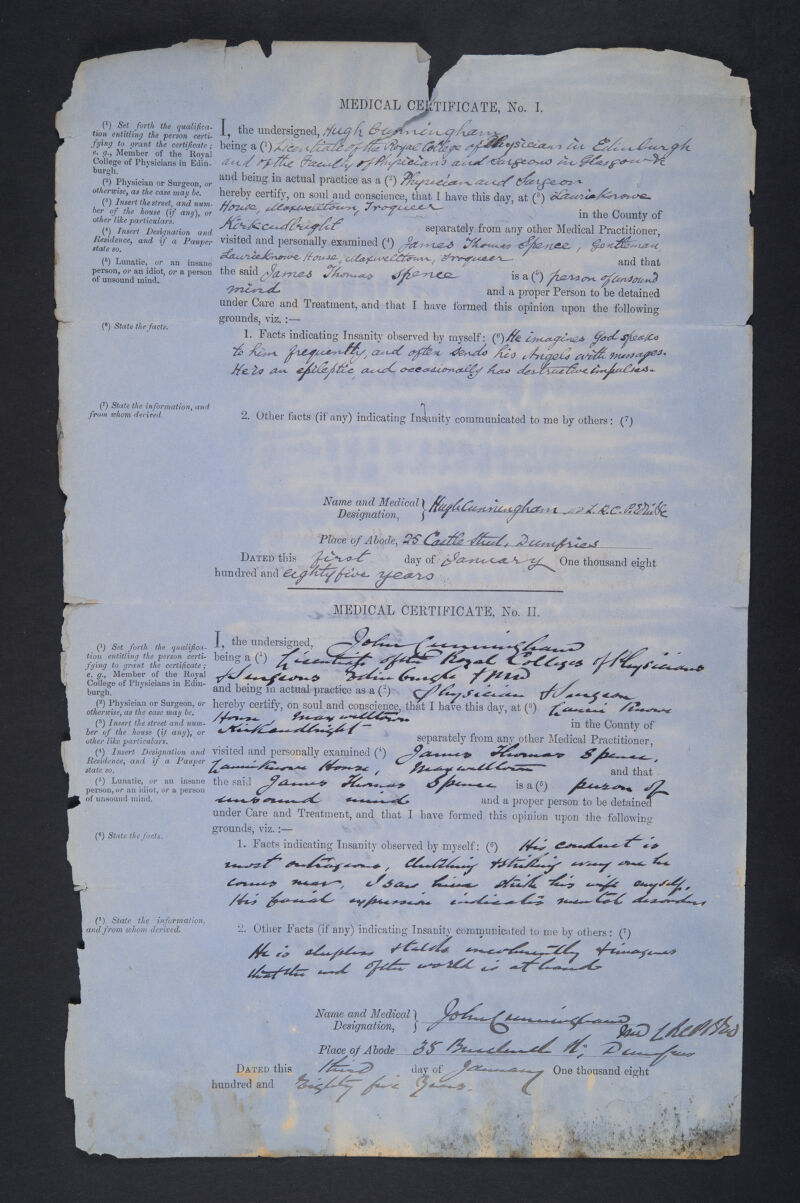 MEDICAL CERTIFICATE, No. I.
(1) Set forth the qualifica-
tion entitling the person certi-
fying to grant the certificate;
e. g., Member of the Royal
College of Physicians in Edin-
burgh.
(2) Physician or Surgeon, or
otherwise, as the case may be.
(3) Insert the street, and num-
ber of the house (if any), or
other like particulars.
(4) Insert Designation and
Residence, and if a Pauper
state so.
(5) Lunatic, or an insane
person, or an idiot, or a person
of unsound mind.
I, the undersigned, Hugh Cunningham
being a (1) Licentiate of the Royal College of Physicians in Edinburgh
and of the Faculty of Physicians and Surgeons in Glasgow &c
and being in actual practice as a (2) Physician and Surgeon
hereby certify, on soul and conscience, that I have this day, at (3) Laurieknowe
House, Maxwelltown, Troqueer in the County of
Kirkcudbright separately from any other Medical Practitioner,
visited and personally examined (4) James Thomas Spence, Gentleman,
Laurieknowe House, Maxwelltown, Troqueer and that
the said James Thomas Spence is a (5) person of unsound
mind and a proper Person to be detained
under Care and Treatment, and that I have formed this opinion upon the following
grounds, viz. :—
(6) State the facts.
1. Facts indicating Insanity observed by myself: (6) He imagines God speaks
to him frequently, and often sends his Angels with messages.
He is an epileptic and occasionally has destructive impulses.
(7) State the information, and
from whom derived.
2. Other facts (if any) indicating Insanity communicated to me by others: (7)
Name and Medical
Designation, Hugh Cunningham L.R.C.P. Edin &c
Place of Abode, 25 Castle Street, Dumfries
DATED this first day of January One thousand eight
hundred and eighty five years
MEDICAL CERTIFICATE, No. II.
(1) Set forth the qualifica-
tion entitling the person certi-
fying to grant the certificate;
e. g., Member of the Royal
College of Physicians in Edin-
burgh.
(2) Physician or Surgeon, or
otherwise, as the case may be.
(3) Insert the street and num-
ber of the house (if any), or
other like particulars.
(4) Insert Designation and
Residence, and if a Pauper
state so.
(5) Lunatic, or an insane
person, or an idiot, or a person
of unsound mind.
I, the undersigned, John Cunningham
being a (1) Licentiate of the Royal Colleges of Physicians
& Surgeons Edinburgh & MD
and being in actual practice as a (2) Physician & Surgeon
hereby certify, on soul and conscience, that I have this day, at (3) Laurie Knowe
House Maxwelltown in the County of
Kirkcudbright separately from any other Medical Practitioner,
visited and personally examined (4) James Thomas Spence,
Laurieknowe House, Maxwelltown and that
the said James Thomas Spence is a (5) person of
unsound mind and a proper person to be detained
under Care and Treatment, and that I have formed this opinion upon the following
grounds, viz. :—
(6) State the facts.
1. Facts indicating Insanity observed by myself: (6) His conduct is
most outrageous, clutching & striking any one he
comes near. I saw him strike his wife myself.
His facial expression indicates mental disorder
(7) State the information,
and from whom derived.
2. Other Facts (if any) indicating Insanity communicated to me by others: (7)
He is sleepless & talks incoherently & imagines
that the end of the world is at hand
Name and Medical
Designation, John Cunningham MD
Place of Abode 35 Buccleuch St, Dumfries
DATED this third day of January One thousand eight
hundred and Eighty five Years.